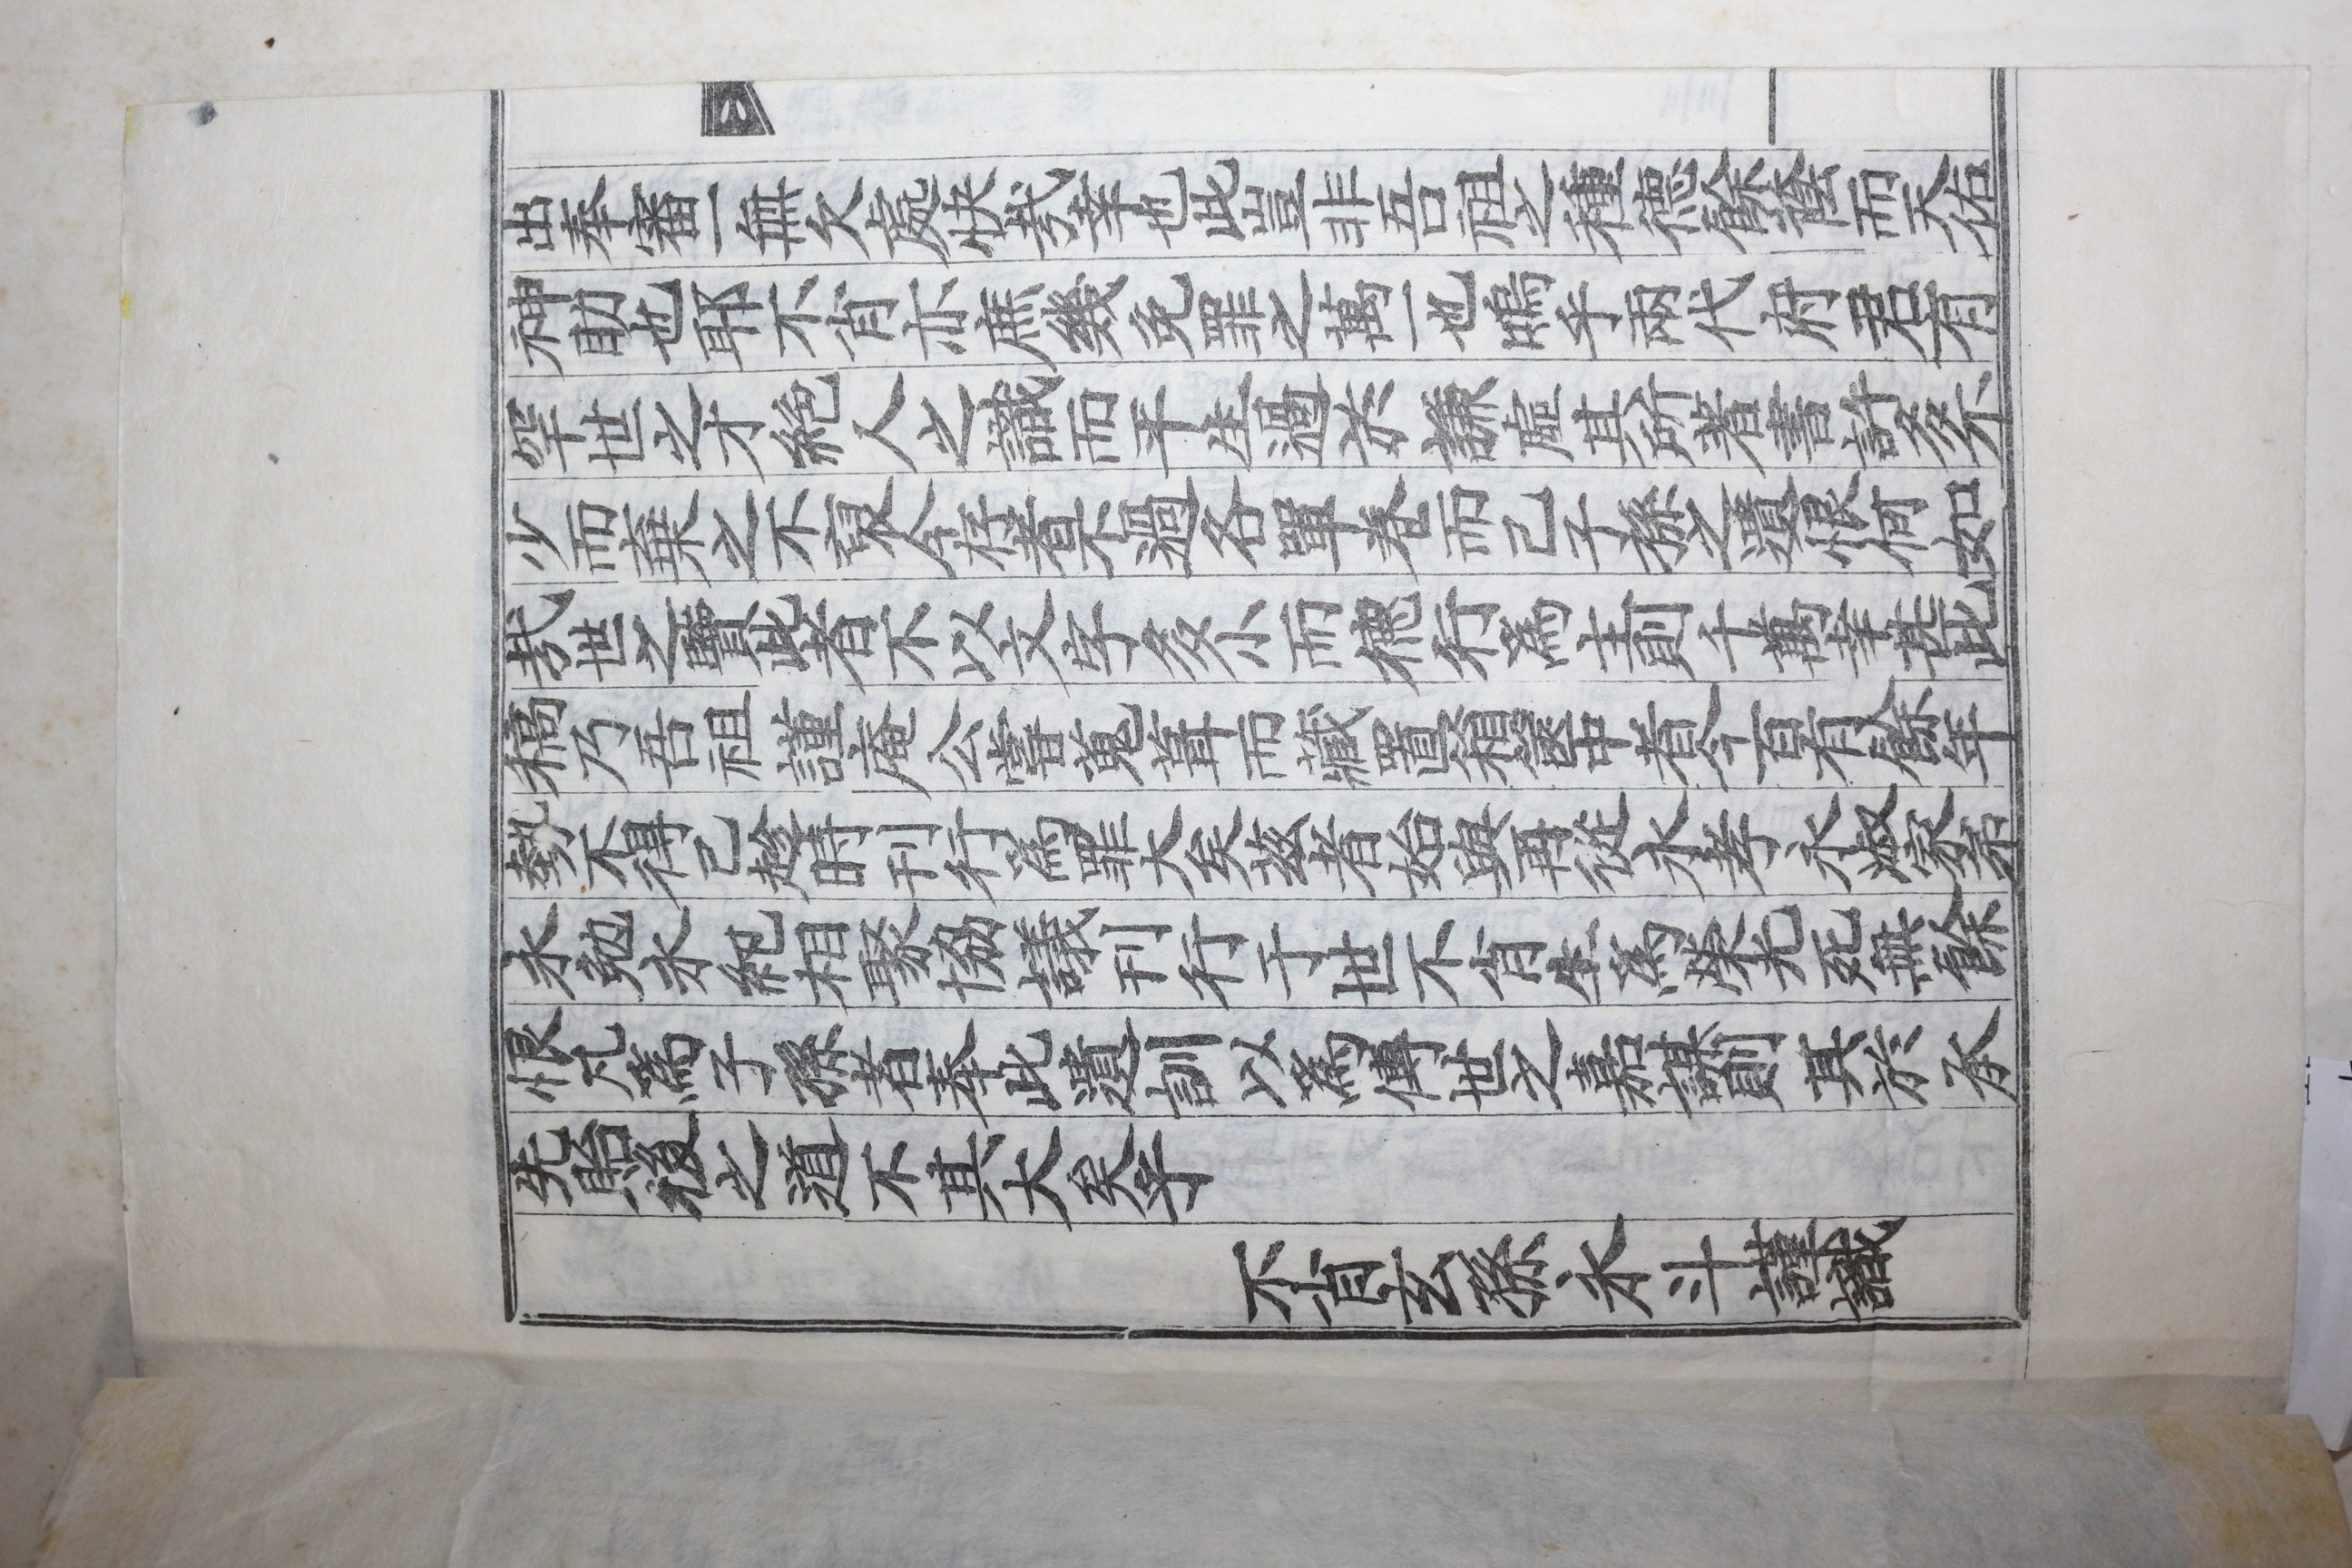 出奉審一無欠處快哉幸也此豈非吾祖之種德餘蔭而天佑
神助也耶不肖亦庶幾免罪之萬一也嗚乎兩代府君有
罕世之才絶人之識而平生過於謙虛其所著書許多不
少而棄之不裒今存者不過各單卷而已子孫之遺恨何如
哉世之覽此者不以文字多小而德行爲主則千萬幸甚此
稿乃吾祖謹庵公嘗蒐葺而藏置箱篋中者今百有餘年
勢不得已趁時刊行爲罪大矣茲者始與再從永孝永淑家弟
永勉永紀相聚協議刊行于世不肖生爲榮光死無餘
恨凡爲子孫者奉此遺訓以爲傳世之嘉謨則其於承
先貽後之道不其大矣乎
不肖玄孫永斗謹識